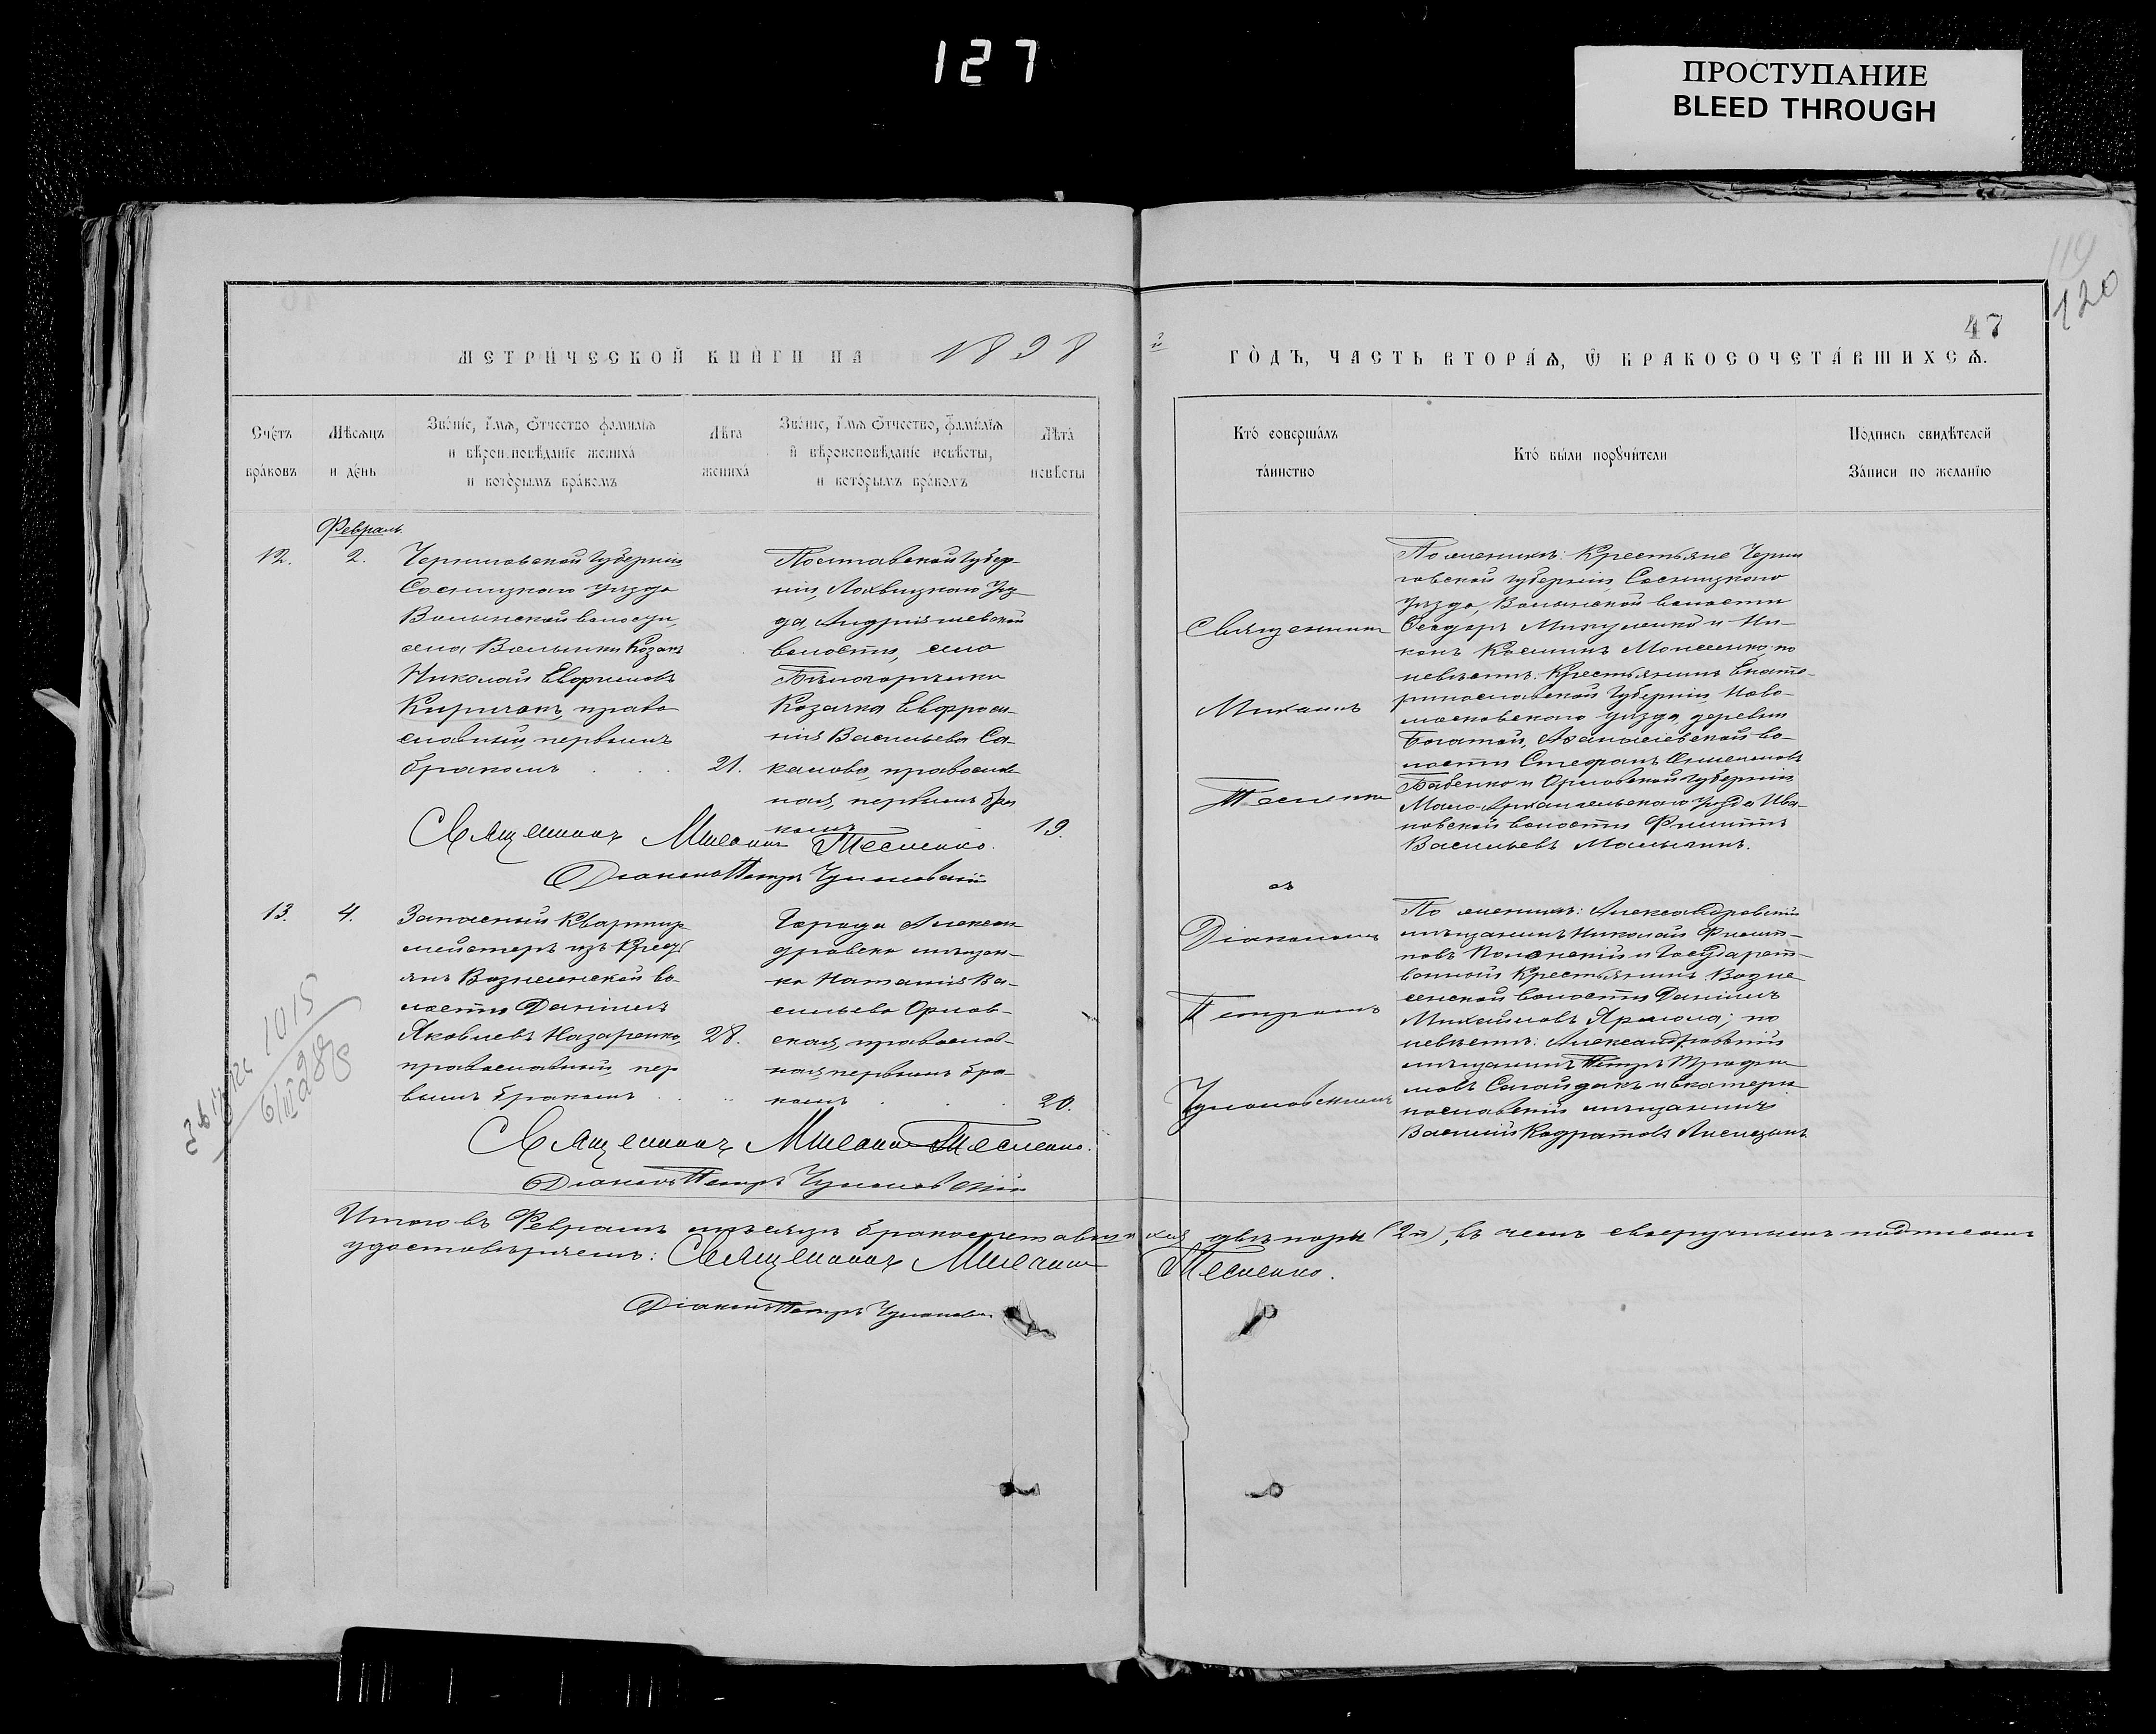 127
ПРОСТУПАНИЕ
BLEED THROUGH
119
120
47
МЕТРИ́ЧЕСКОЙ КНИ́ГИ НА 1898 й
ГО́ДЪ, ЧАСТЬ ВТОРА́Ѧ, Ѿ БРАКОСОЧЕТА́ВШИХСѦ.
Сче́тъ
бра́ковъ
Мѣ́сѧцъ
и де́нь
Зва́нїе, и́мѧ, ѻ́тчество фами́лїѧ
и вѣроисповѣ́данїе жениха́
и кото́рымъ бра́комъ
Лѣта̀
жениха́
Зва́нїе, и́мѧ ѻ́тчество, фами́лїѧ
и вѣроисповѣ́данїе невѣ́сты,
и кото́рымъ бра́комъ
Лѣта̀
невѣ́сты
Кто́ соверша́лъ
та́инство
Кто́ бы́ли порꙋчи́тели
По́дпись свидѣ́телей
За́писи по жела́нїю
Февраль
12.
2.
Черниговской губерніи
Сосницкаго уѣзда
Волынской волости,
села Волынки Козакъ
Николай Евфимовъ
Киричокъ, право
славный, первымъ
бракомъ
21.
Полтавской губер-
ніи, Лохвицкаго Уѣз
да, Андріяшевской
волости, села
Бѣлогорилки
Козачка Евфроси-
нія Васильева Са-
калова, православ
ная, первымъ бра
комъ
19.
Священникъ
Михаилъ
Тесленко
По женихѣ: Крестьяне Черни
говской губерніи, Сосницкаго
уѣзда, Волынской волости
Ѳеодоръ Микуленко и Ни-
конъ Косминъ Моисеенко; по
невѣстѣ: Крестьянинъ Екате-
ринославской Губерніи, Ново-
московскаго уѣзда, деревни
Богатой, волости Стефанъ
Бабенко и Орловской губерніи
Мало-Архангельскаго уѣзда Ива-
новской волости Филиппъ
Васильевъ Малыгинъ.
Священникъ Михаилъ Тесленко.
Діаконъ Петръ Чулановскій
13.
4.
Запасный Квартир
мейстеръ изъ Крест
янъ Вознесенской во-
лости Даніилъ
Яковлевъ Назаренко,
православный, пер
вымъ бракомъ
28.
Города Алексан
дровска мѣщан-
ка Наталія Ва-
сильева Орлов-
ская, православ-
ная, первымъ бра-
комъ
20.
съ
Діакономъ
Петромъ
Чулановскимъ
По женихѣ: Александровскій
мѣщанинъ Николай Филип-
повъ Полонскій и Государст-
венный Крестьянинъ Возне
сенской волости Даніилъ
Михайловъ Ярмола; по
невѣстѣ: Александровскій
мѣщанинъ Петръ Трофи
мовъ Сагайдакъ и Екатери
нославскій мѣщанинъ
Василій
Священникъ Михаилъ Тесленко.
Діаконъ Петръ Чулановскій
1015
Итого въ Февралѣ мѣсяцѣ бракосочетавшихся двѣ пары (2 п), въ чемъ своеручнымъ подписомъ
удостовѣряемъ: Священникъ Михаилъ Тесленко.
Діаконъ Петръ Чулановскій